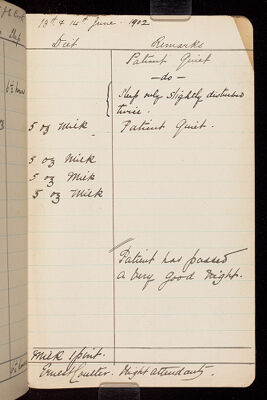 13th & 14th June. 1902
Diet Remarks
Patient Quiet
— do —
Sleep only slightly disturbed
twice.
5 oz Milk Patient Quiet.
5 oz Milk
5 oz Milk
5 oz Milk
Patient has passed
a very good night.
Milk 1 pint.
Ernest Coulter. Night attendant.